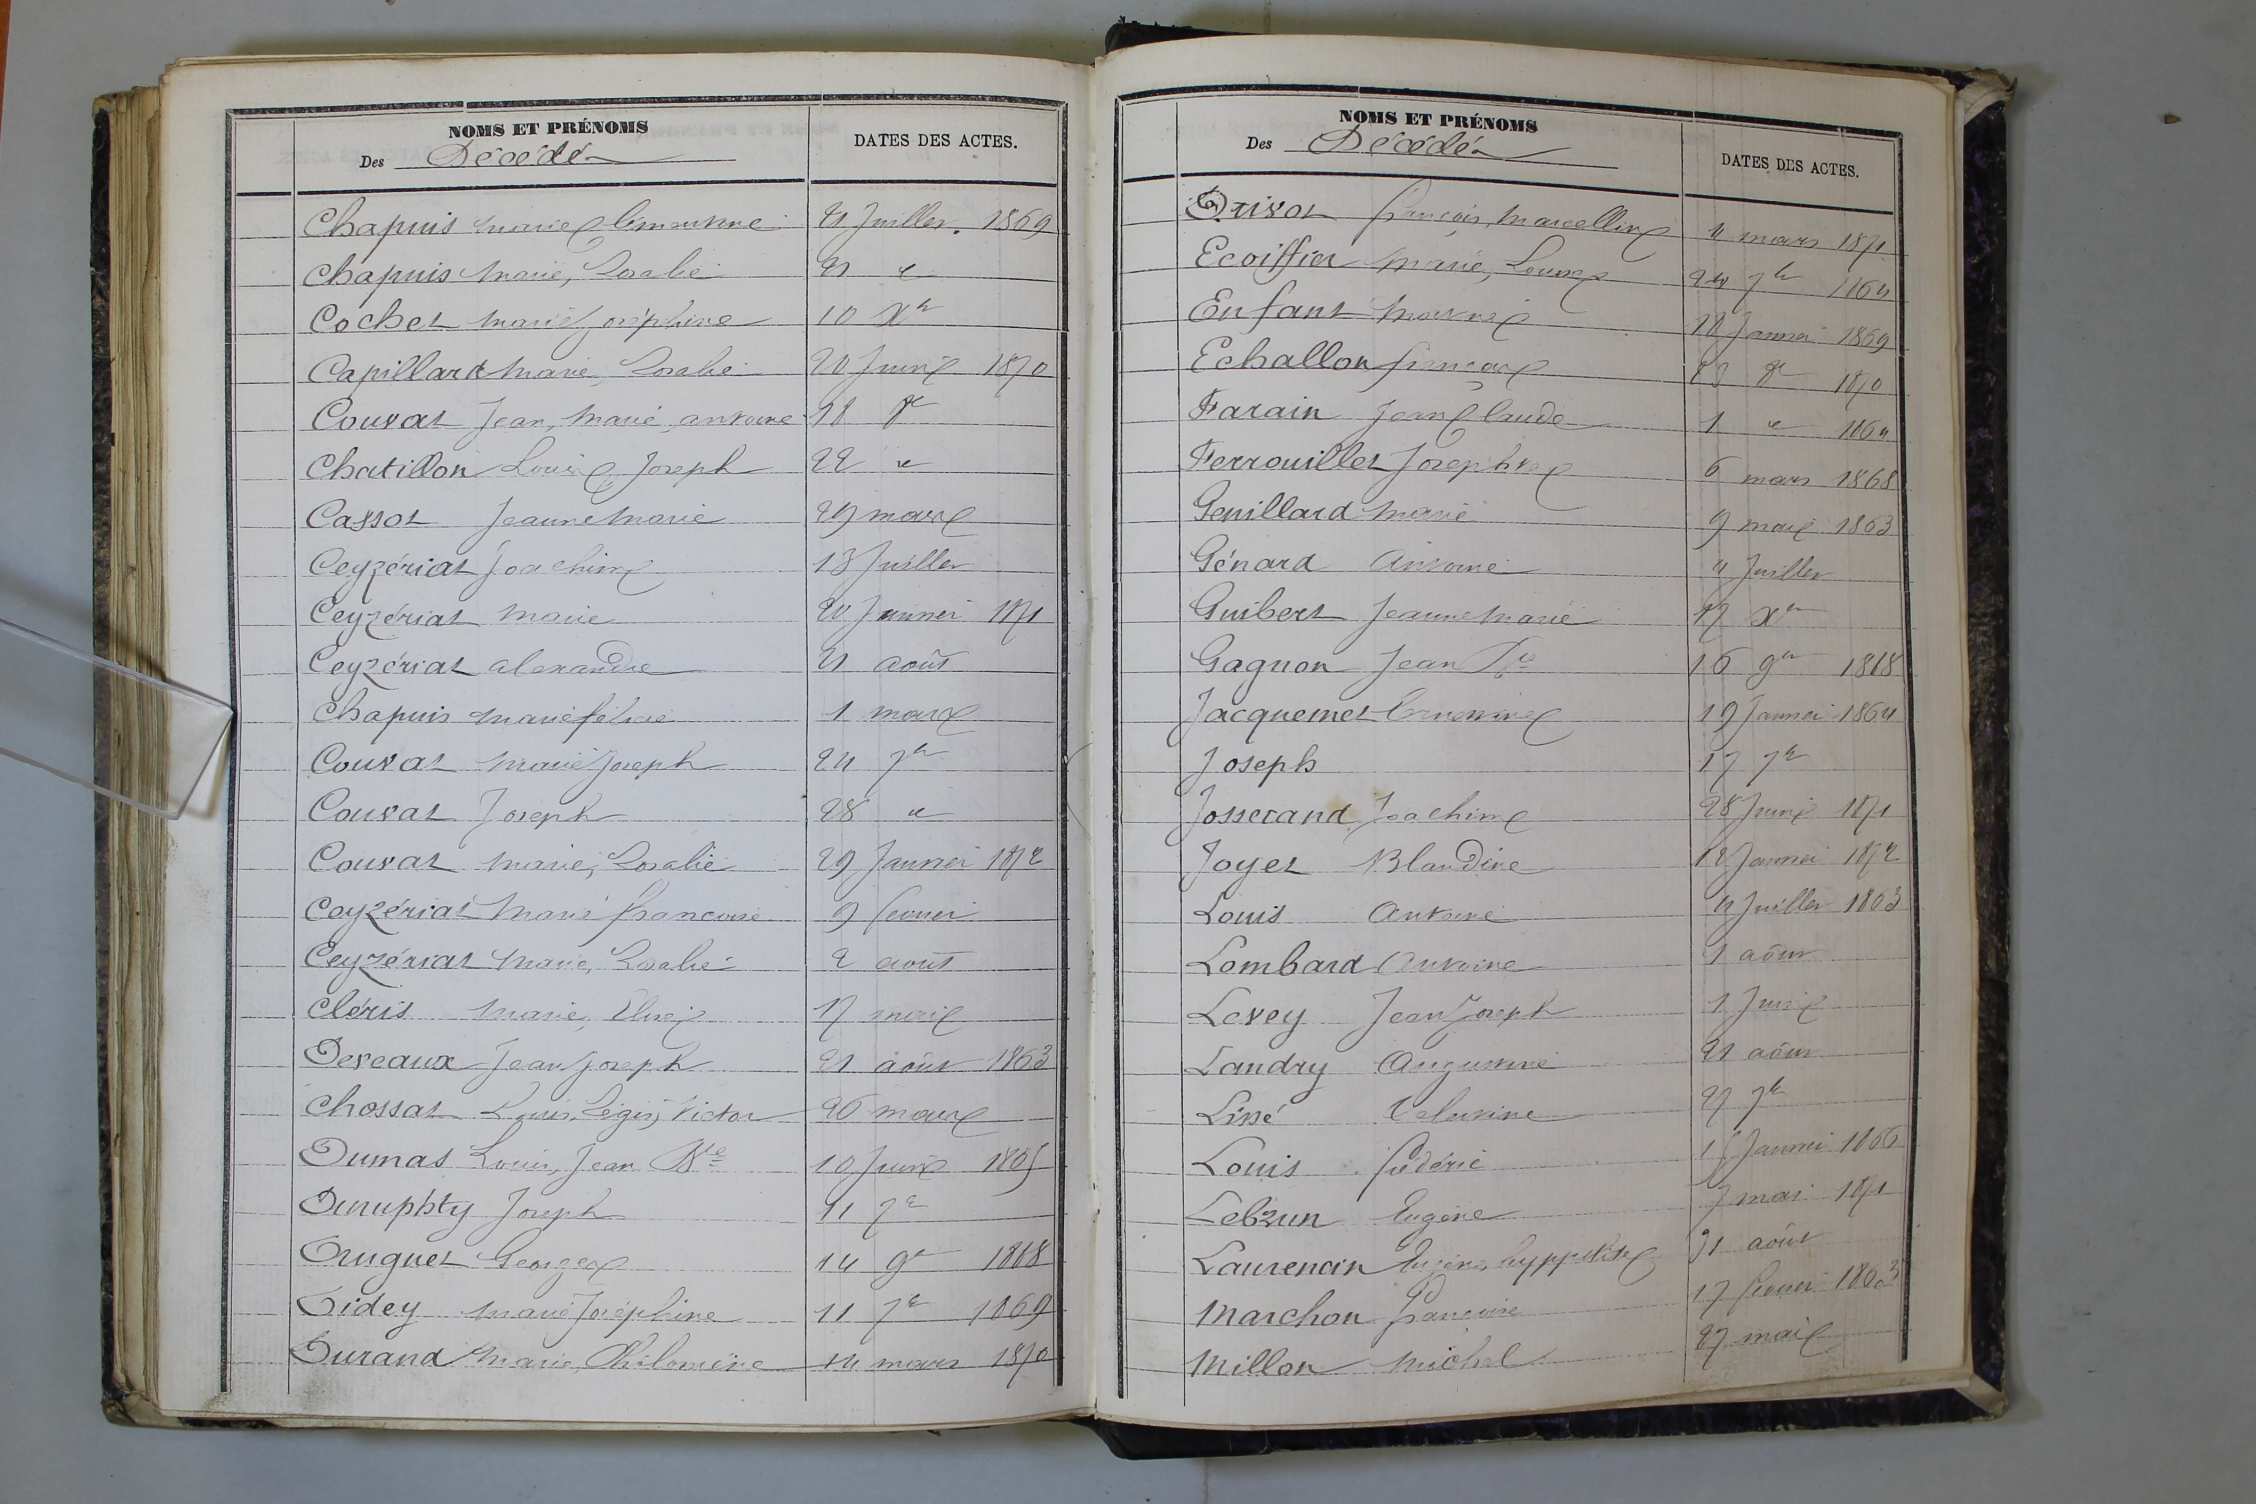 NOMS ET PRÉNOMS
Des Décédés
DATES DES ACTES.
Chapuis Marie Clémentine 21 Juillet. 1869
Chapuis Marie, Rosalie 21 "
Cochet Marie Joséphine 10 Xbre
Capillard Marie, Rosalie 20 Juin 1870
Couvat Jean, Marie, antoine 18 8bre
Chatillon Louis, Joseph 22 "
Cassot Jeanne Marie 29 mars
Ceyzériat Joachim 13 Juillet
Ceyzériat Marie 20 Janvier 1871
Ceyzériat alexandre 21 août
Chapuis Marie félicie 1 mars
Couvat Marie Joseph 24 7bre
Couvat Joseph 28 "
Couvat Marie, Rosalie 29 Janvier 1872
Ceyzériat Marie françoise 9 février
Ceyzériat Marie, Rosalie 2 août
Cléris Marie, Elise 17 mai
Deveaux Jean Joseph 21 août 1863
Chossat Louis, Régis, Victor 26 mars
Dumas Louis, Jean Bte 10 Juin 1865
Joseph 11 7bre
Druguet Georges 14 9bre 1868
Didey Marie Joséphine 11 7bre 1869
Durand Marie, Philomène 14 mars 1870
NOMS ET PRÉNOMS
Des Décédés
DATES DES ACTES.
Drivot françois, Marcellin 4 mars 1871
Ecoiffier Marie, Louise 24 7bre 1864
Enfant 18 Janvier 1869
Echallon françois 23 8bre 1870
Farain Jean Claude 1 " 1864
Ferrouillet Joseph 6 mars 1868
Genillard Marie 9 mai 1863
Génard Antoine 4 Juillet
Guibert Jeanne Marie 17 Xbre
Gagnon Jean 16 9bre 1868
Jacquemet 19 Janvier 1864
Joseph 17 7bre
Josserand Joachim 28 Juin 1871
Joyet Blandine 12 Janvier 1872
Louis Antoine 4 Juillet 1863
Lombard Antoine 9 août
Levey Jean Joseph 1 Juin
Landry Augustine 21 août
Lissé 27 7bre
Louis frédéric 15 Janvier 1866
Lebrun Eugène 7 mai 1871
Laurencin Eugène, hyppolite 31 août
Marchon françoise 17 février 1863
Millon Michel 27 mai